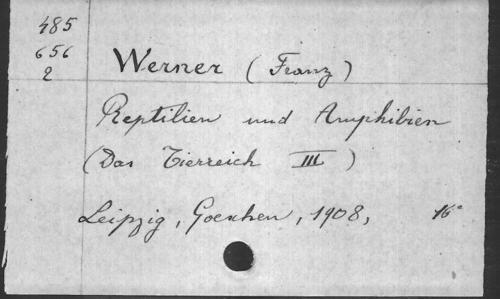 485
656
2
Werner (Franz)
Reptilien und Amphibien
(Das Tierreich III)
Leipzig, Goeschen, 1908, 16°